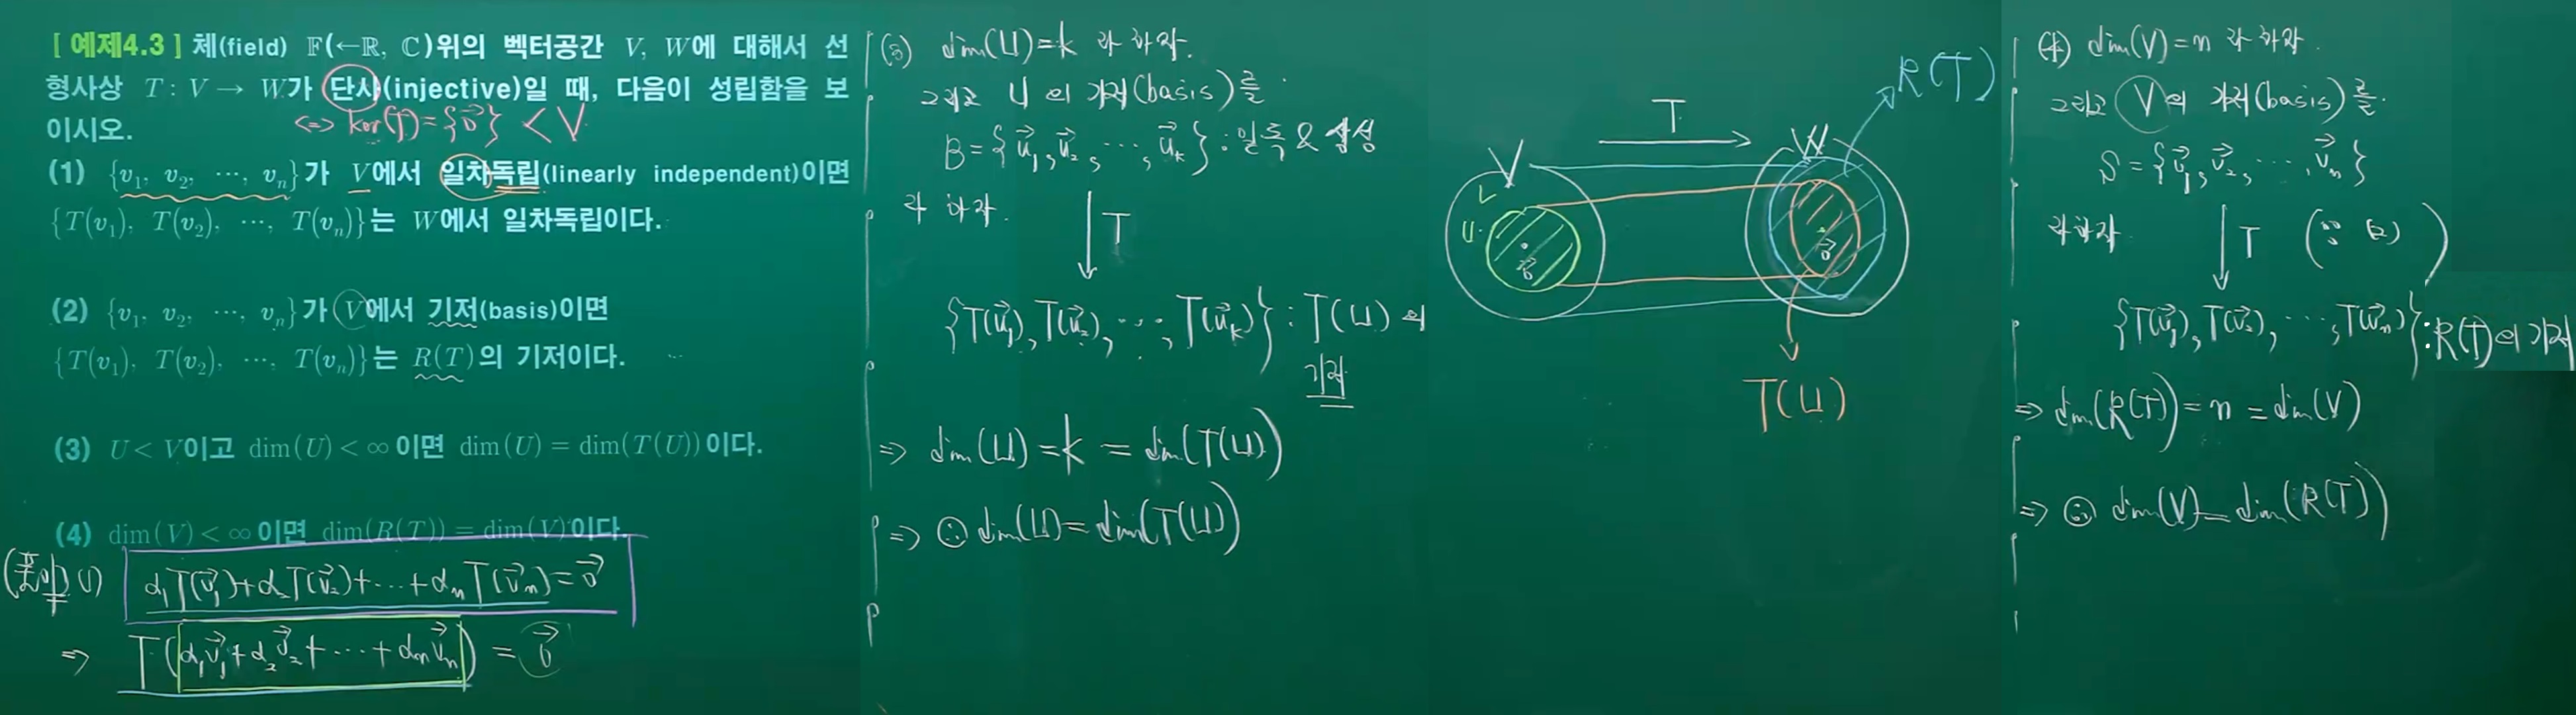 [ 예제4.3 ] 체(field) 𝔽(←ℝ, ℂ)위의 벡터공간 V, W에 대해서 선
형사상 T : V → W가 단사(injective)일 때, 다음이 성립함을 보
이시오.
<=> ker(T)={0⃗} < V
(1) {v₁, v₂, ⋯, vₙ}가 V에서 일차독립(linearly independent)이면
{T(v₁), T(v₂), ⋯, T(vₙ)}는 W에서 일차독립이다.
(2) {v₁, v₂, ⋯, vₙ}가 V에서 기저(basis)이면
{T(v₁), T(v₂), ⋯, T(vₙ)}는 R(T)의 기저이다.
(3) U < V이고 dim(U) < ∞이면 dim(U) = dim(T(U))이다.
(4) dim(V) < ∞이면 dim(R(T)) = dim(V)이다.
(풀이) (1) α₁T(v⃗₁)+α₂T(v⃗₂)+⋯+αₙT(v⃗ₙ)=0⃗
=> T(α₁v⃗₁+α₂v⃗₂+⋯+αₙv⃗ₙ) = 0⃗
(3) dim(U)=k 라 하자.
그리고 U의 기저(basis)를
B={u⃗₁, u⃗₂, ⋯, u⃗ₖ} : 일독 & 생성
라 하자.
↓ T
{T(u⃗₁), T(u⃗₂), ⋯, T(u⃗ₖ)} : T(U)의
기저
=> dim(U)=k = dim(T(U))
=> ∴ dim(U)=dim(T(U))
T
V
W
R(T)
U
0⃗
0⃗
T(U)
(4) dim(V)=n 라 하자.
그리고 V의 기저(basis)를
S={v⃗₁, v⃗₂, ⋯, v⃗ₙ}
라 하자
↓ T (∵ (2))
{T(v⃗₁), T(v⃗₂), ⋯, T(v⃗ₙ)} : R(T)의 기저
=> dim(R(T))= n = dim(V)
=> ∴ dim(V)=dim(R(T))